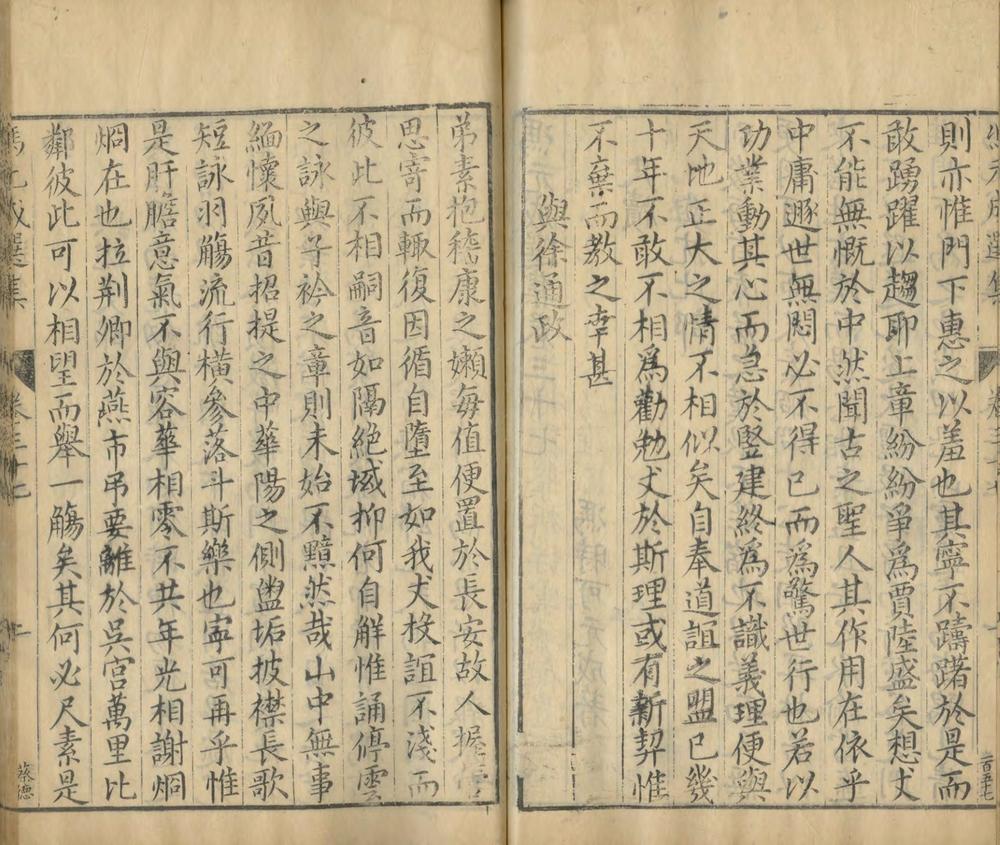 則亦惟門下惠之以羞也其寧不躊躇於是而
敢踴躍以趨耶上章紛紛爭為賈陸盛矣想丈
不能無慨於中然聞古之聖人其作用在依乎
中庸遯世無悶必不得已而為驚世行也若以
功業動其心而急於竪建終為不識義理便與
天地正大之情不相似矣自奉道誼之盟已幾
十年不敢不相為勸勉丈於斯理或有新契惟
不棄而教之幸甚
與徐通政
弟素抱嵇康之嬾每值便置於長安故人握
思寄而輒復因循自墮至如我丈投誼不淺而
彼此不相嗣音如隔絕域抑何自解惟誦停雲
之詠與子衿之章則未始不黯然哉山中無事
緬懷夙昔招提之中華陽之側盥垢披襟長歌
短詠羽觴流行橫參落斗斯樂也寧可再乎惟
是肝膽意氣不與容華相零不共年光相謝炯
炯在也拉荆卿於燕市弔要離於吳宮萬里比
鄰彼此可以相望而舉一觴矣其何必尺素是
馮元成選集
卷三十七
二百五七
蔡德